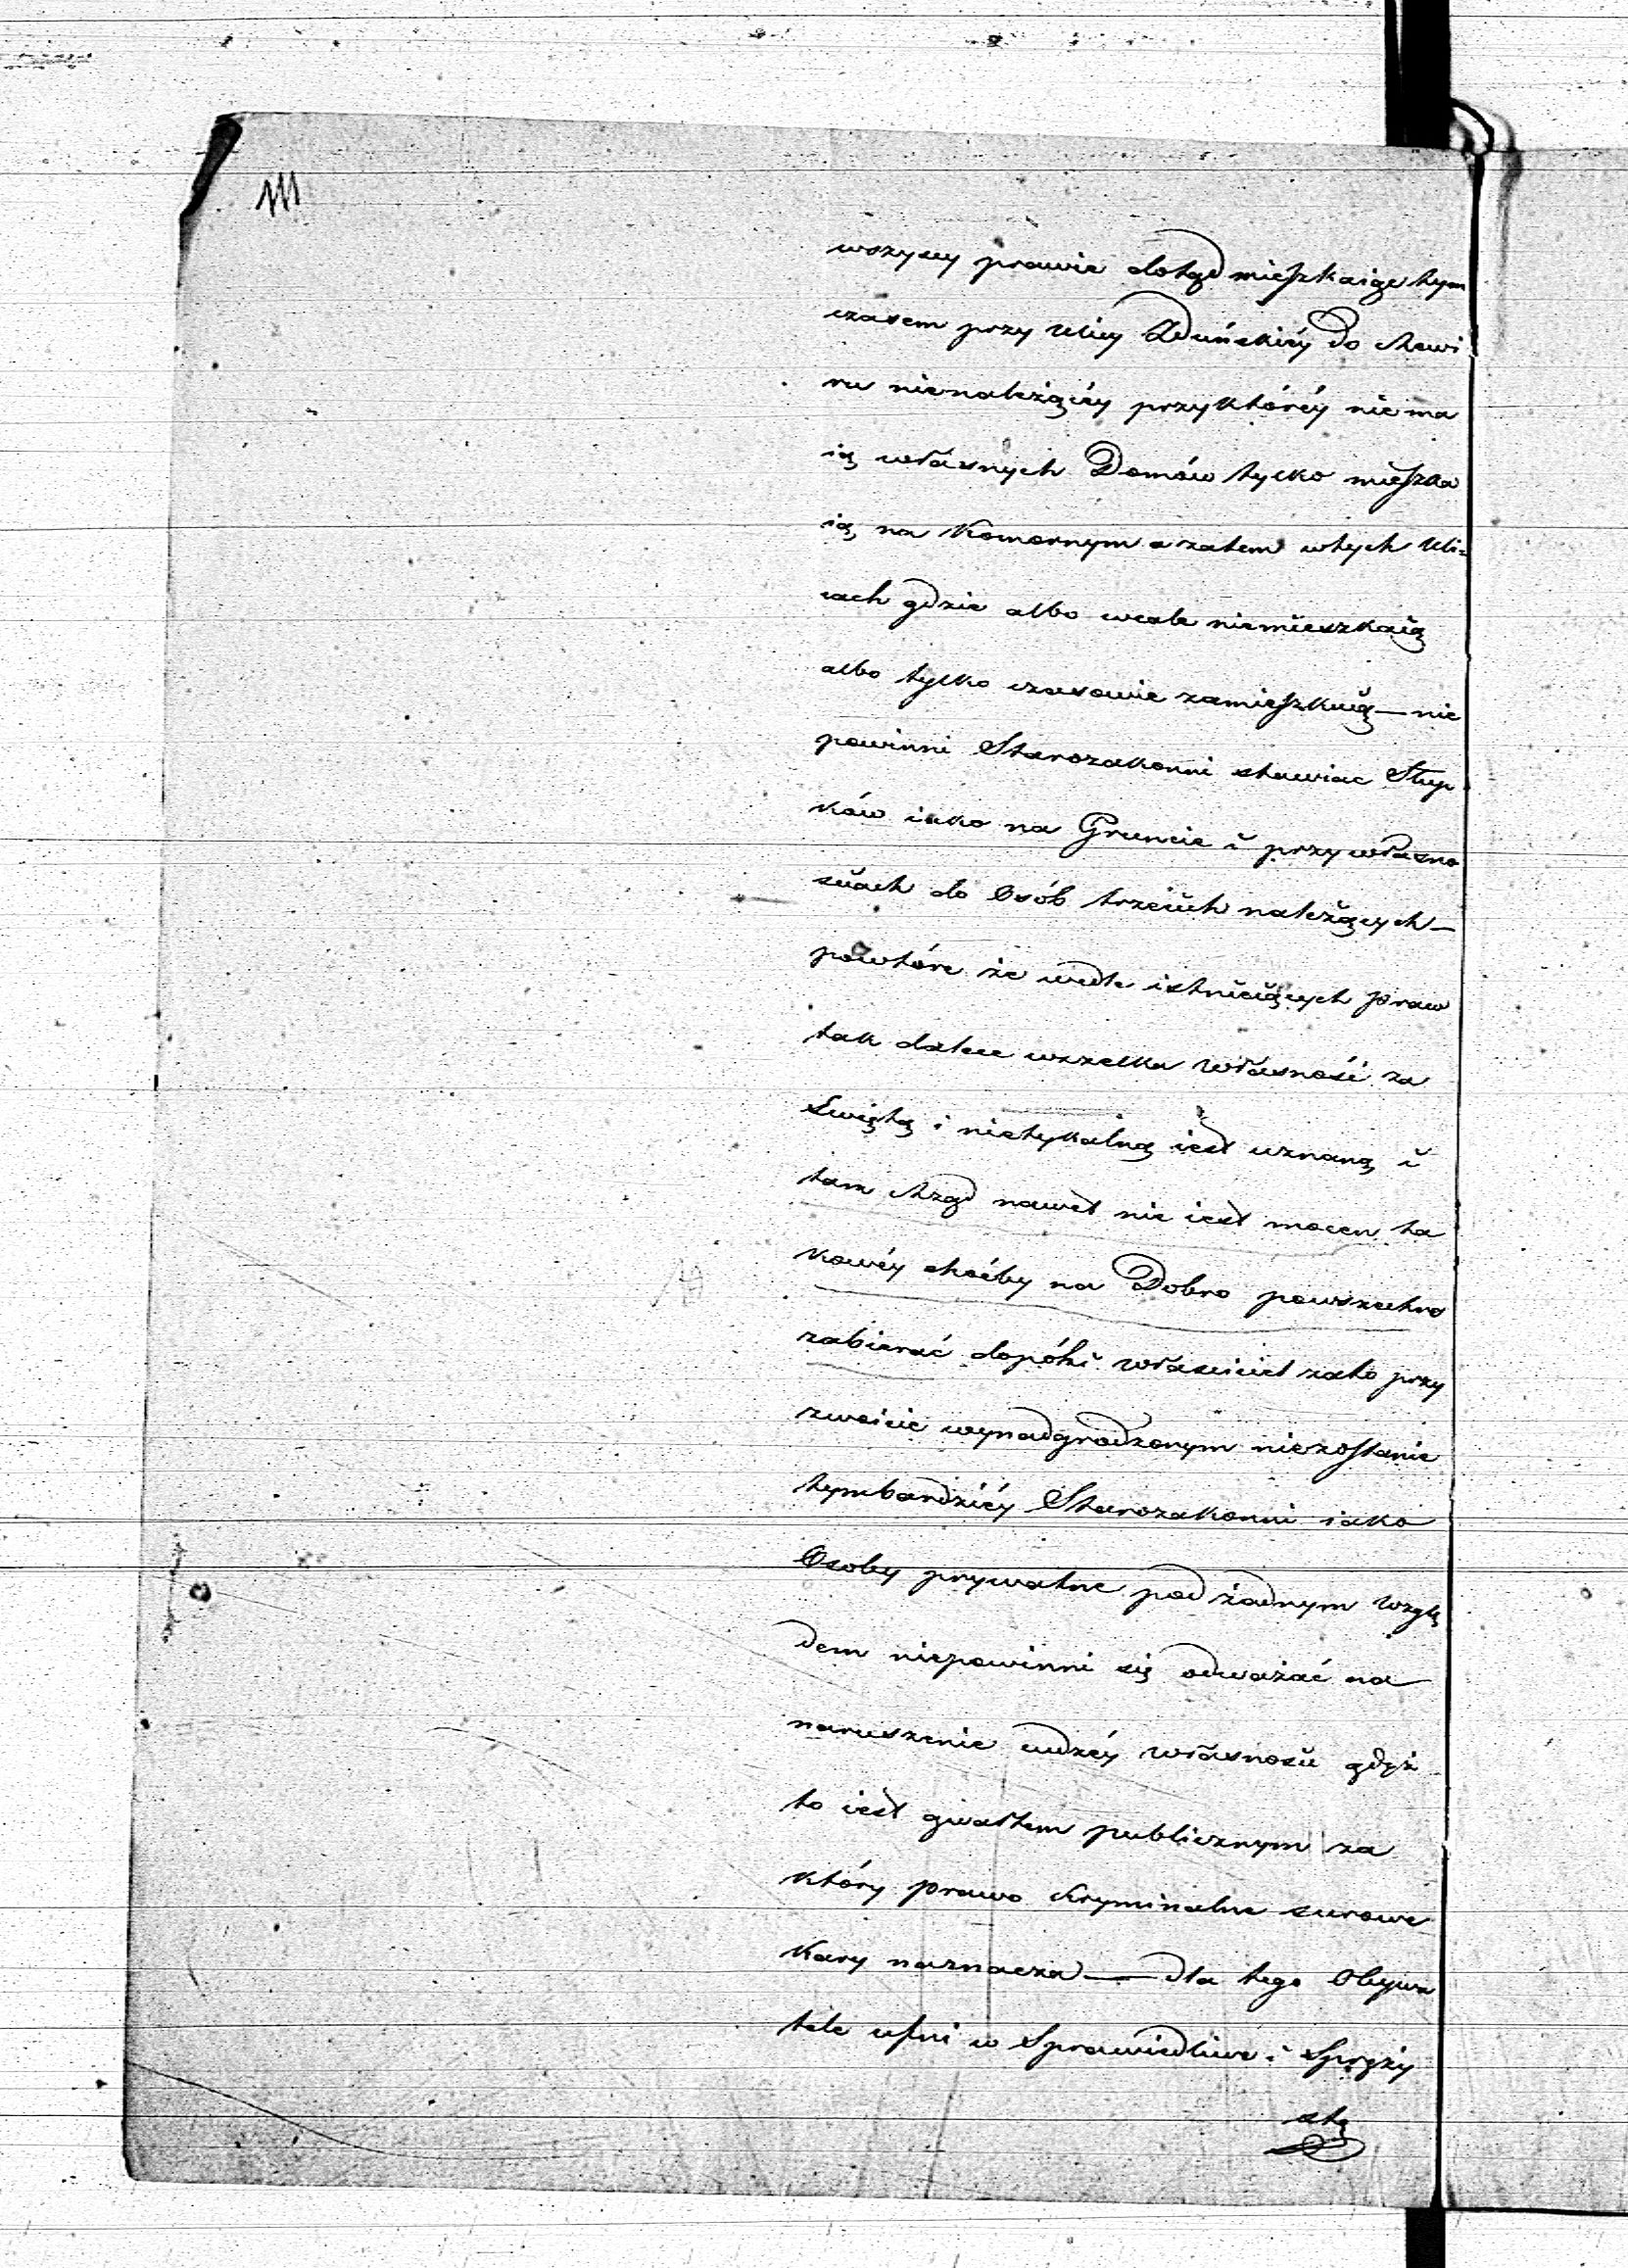 wszyscy prawie dotąd mieszkaiąc tym
czasem przy ulicy Zduńskiéy do Rewi
ru nienależącéy przyktóréy nie ma
ią własnych Domów tylko mieszka
ią na Komornym a zatem wtych Uli=
cach gdzie albo wcale niemieszkaią
albo tylko czasowie zamieszkuią — nie
powinni Starozakonni stawiac Słup
ków iako na Gruncie i przy własno
sciach do Osób trzecich należących —
powtóre że wedle istnieiących praw
tak dalece wszelka własność za
Swiętą i nietykalną iest uznaną i
tam Rząd nawet nie iest mocen ta
kowéy choćby na Dobro powszechne
zabierać dopóki właściciel zato przy
zwoicie wynadgrodzonym niezostanie
tymbardziéy Starozakonni iako
Osoby prywatne pod żadnym wzglę
dem niepowinni się odważać na
naruszenie cudzéy własności gdyż
to iest gwałtem publicznym za
który prawo Kryminalne surowe
Kary naznacza — dla tego Obywa
tele ufni w Sprawiedliwe i Spręży
stą